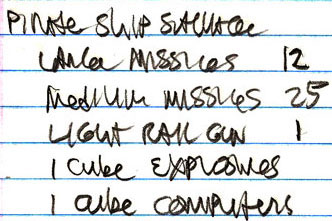 PIRATE SHIP SALVAGE
LARGE MISSILES 12
MEDIUM MISSILES 25
LIGHT RAIL GUN 1
1 CUBE EXPLOSIVES
1 CUBE COMPUTERS